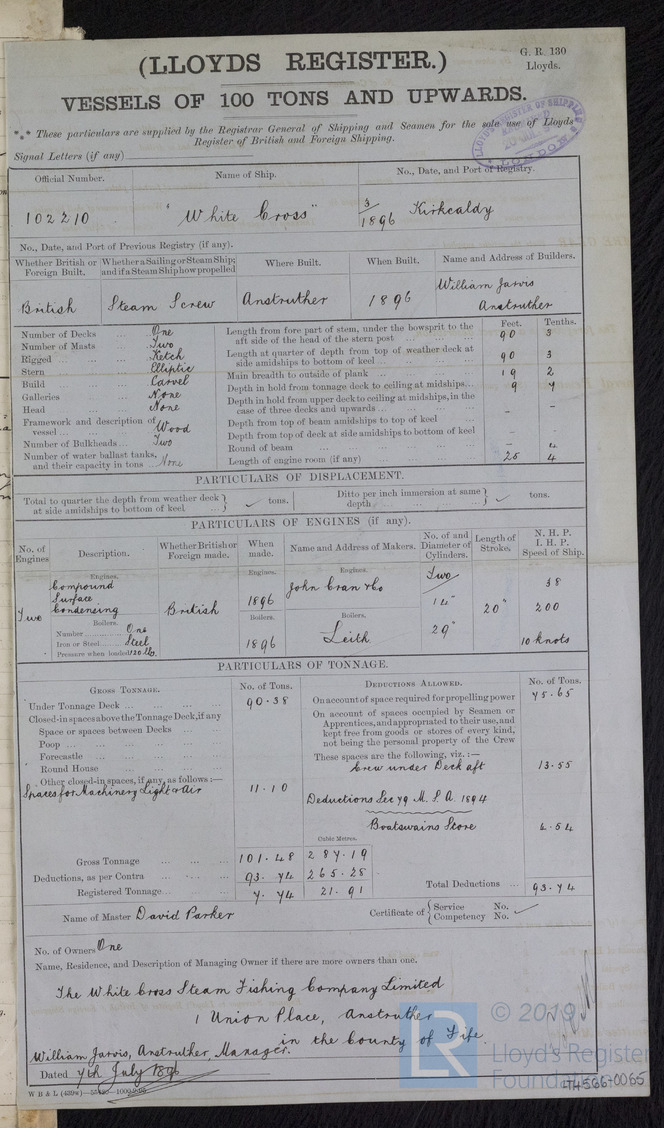 G. R. 130
Lloyds.
(LLOYDS REGISTER.)
VESSELS OF 100 TONS AND UPWARDS.
*** These particulars are supplied by the Registrar General of Shipping and Seamen for the sole use of Lloyds
Register of British and Foreign Shipping.
LLOYD'S REGISTER OF SHIPPING
LONDON
Signal Letters (if any)
Official Number. Name of Ship. No., Date, and Port of Registry.
102210 "White Cross" 3/1896 Kirkcaldy
No., Date, and Port of Previous Registry (if any).
Whether British or Foreign Built. Whether a Sailing or Steam Ship; and if a Steam Ship how propelled Where Built. When Built. Name and Address of Builders.
British Steam Screw Anstruther 1896 William Jarvis
Anstruther
Number of Decks ... One
Number of Masts ... Two
Rigged ... Ketch
Stern ... Elliptic
Build ... Carvel
Galleries ... None
Head ... None
Framework and description of
vessel ... Wood
Number of Bulkheads ... Two
Number of water ballast tanks,
and their capacity in tons ... None
Feet. Tenths.
Length from fore part of stem, under the bowsprit to the
aft side of the head of the stern post ... 90 3
Length at quarter of depth from top of weather deck at
side amidships to bottom of keel ... 90 3
Main breadth to outside of plank ... 19 2
Depth in hold from tonnage deck to ceiling at midships... 9 7
Depth in hold from upper deck to ceiling at midships, in the
case of three decks and upwards ... - -
Depth from top of beam amidships to top of keel ...
Depth from top of deck at side amidships to bottom of keel
Round of beam ... -
Length of engine room (if any) ... 25 4
PARTICULARS OF DISPLACEMENT.
Total to quarter the depth from weather deck
at side amidships to bottom of keel ... } ✓ tons. Ditto per inch immersion at same
depth ... } ✓ tons.
PARTICULARS OF ENGINES (if any).
No. of Engines Description. Whether British or Foreign made. When made. Name and Address of Makers. No. of and Diameter of Cylinders. Length of Stroke. N. H. P. I. H. P. Speed of Ship.
Engines. Engines. Engines. Two
Compound John Cran & Co 38
Surface 1896
Two Condensing British 20" 200
Boilers. Boilers. Boilers.
Number One 29"
Iron or Steel Steel 1896 Leith 10 knots
Pressure when loaded 120 lb.
PARTICULARS OF TONNAGE.
GROSS TONNAGE. No. of Tons.
Under Tonnage Deck ... 90.38
Closed-in spaces above the Tonnage Deck, if any
Space or spaces between Decks ...
Poop ...
Forecastle ...
Round House ...
Other closed-in spaces, if any, as follows:—
Spaces for Machinery Light & Air 11.10
Cubic Metres.
Gross Tonnage ... 101.48 287.19
Deductions, as per Contra ... 93.74 265.28
Registered Tonnage ... 7.74 21.91
DEDUCTIONS ALLOWED. No. of Tons.
On account of space required for propelling power 75.65
On account of spaces occupied by Seamen or
Apprentices, and appropriated to their use, and
kept free from goods or stores of every kind,
not being the personal property of the Crew
These spaces are the following, viz.:—
Crew under Deck aft 13.55
Deductions Sec 79 M. S. A. 1894
Boatswains Store 4.54
Total Deductions ... 93.74
Name of Master David Parker Certificate of { Service No.
Competency No. ✓
No. of Owners One
Name, Residence, and Description of Managing Owner if there are more owners than one.
The White Cross Steam Fishing Company Limited
1 Union Place, Anstruther
in the County of Fife.
William Jarvis, Anstruther, Manager.
Dated 7th July 1896
W B & L
LR
© 2019
Lloyd's Register
Foundation
LT4566-0065